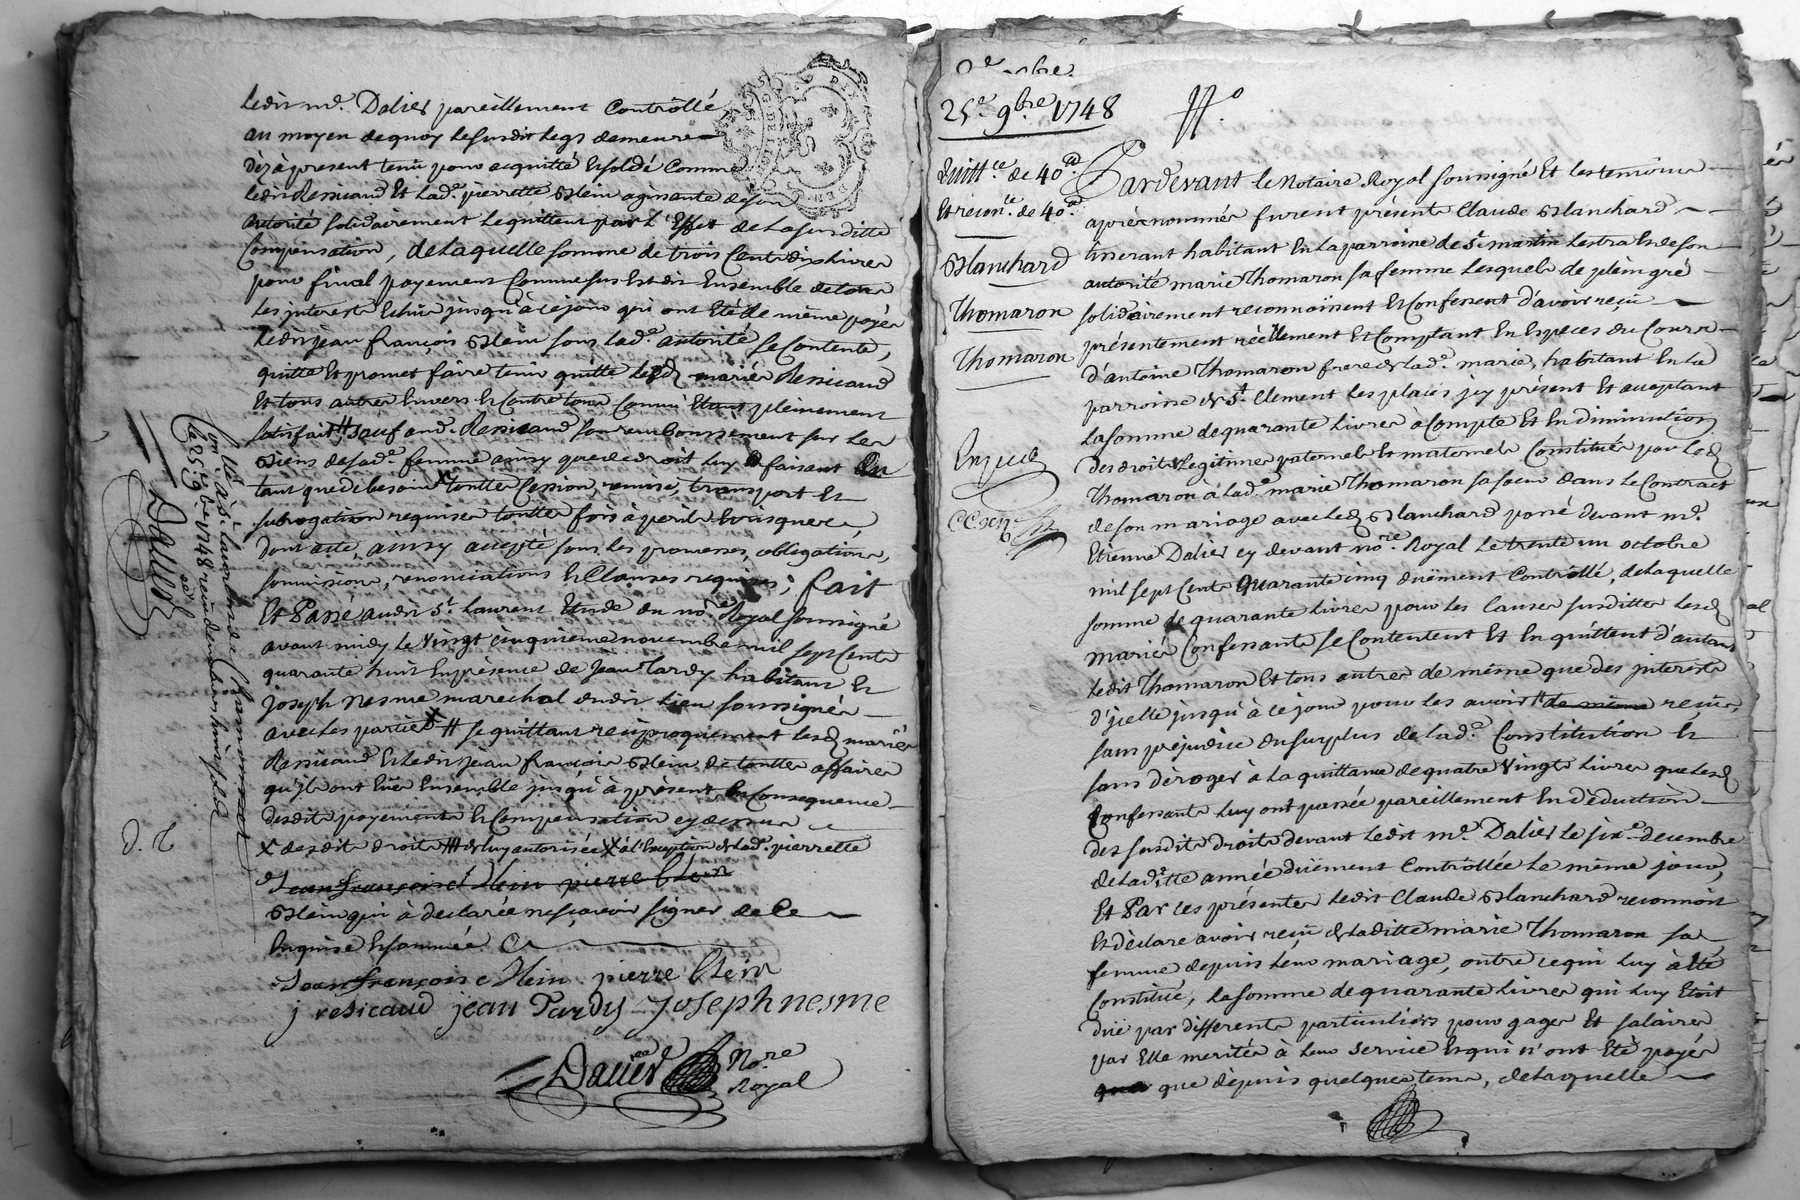 ledit me. Dalier pareillement Controllé,
au moyen dequoy lesusdit legs demeure
dèz à present tenu pour acquitté Et soldé Comme
ledit Ressicaud Et lade. pierrette Blein agissante de son
autorité solidairement lequittent par l'Effet de la susditte
Compensation, de laquelle somme de trois Cents dix livres
pour final payement Comme sus Est dit Ensemble de tous
les jnterests Echus jusqu'à ce jour qui ont Eté de même payés
ledit jean françois Blein sous lade. autorité se Contente,
quitte Et promet faire tenir quitte lesd mariés Ressicaud
Et tous autres Envers Et Contre tous Comme Etant pleinement
satisfait, # sauf aud. Ressicaud son remboursement sur les
Biens de sade. femme ainsy que de droit luy faisant En
tant que de besoin X touttes Cession, remise, transport Et
subrogation requises touttes fois à perils Et risques,
dont acte, ainsy accepté sous les promesses, obligations,
soumissions, renonciations Et Clauses requises; fait
Et Passé audit St. laurent Etude du nore. Royal soussigné
avant midy le vingt cinquieme novembre mil sept Cents
quarante huit En présence de Jean Tardy habitant Et
joseph Nesme marechal dudit lieu soussignés
avec les parties # se quittant reciproquement lesd mariés
Ressicaud Et ledit jean françois Blein de touttes affaires
qu'jls ont Eües Ensemble jusqu'à présent En Consequence
desdits payements Et Compensation cy dessus
X desdits droits ## de luy autorisée X à l'Exception de lade. pierrette
Jean françois Blein pierre blein
Blein qui à declarée ne sçavoir signer de Ce
Enquise Et sommée
Jean françois Blein pierre blein
j resicaud jean Tardy Joseph nesme
Dalier Nore
Royal
Conllé à St laurent de Chamousset
le 25 9bre 1748 reçu
Dalier
D. T.
25e. 9bre. 1748
Quittce de 40ll
Et reconce. de 40ll
Blanchard
Thomaron
Thomaron
Pardevant le Notaire Royal soussigné Et les temoins
après nommés furent présents Claude Blanchard
tisserant habitant En la parroisse de St. martin Lestra Et de son
autorité marie Thomaron sa femme lesquels de plein gré
solidairement reconnoissent Et Confessent d'avoir reçu
présentement réellement Et Comptant En Especes du Cours
d'antoine Thomaron frere de lade. marie, habitant En la
parroisse de St. Clement les places jcy présent Et acceptant
la somme de quarante livres à compte Et En diminution
des droits Legitimes paternels Et maternels Constitués par led
Thomaron à lade. marie Thomaron sa soeur dans le Contract
de son mariage avec led Blanchard passé devant me.
Etienne Dalier cy devant nore. Royal le trente un octobre
mil sept Cents quarante cinq düement Controllé, de laquelle
somme de quarante livres pour les causes susdittes lesd
mariés Confessants se Contentent Et En quittent d'autant
ledit Thomaron Et tous autres de même que des jnterests
d'jcelle jusqu'à ce jour pour les avoir de même reçus,
sans préjudice du surplus de lade. Constitution Et
sans déroger à la quittance de quatre vingts livres que lesd
Confessants luy ont passée pareillement En déduction
des susdits droits devant ledit me. Dalier le sixe. decembre
de laditte année düement Controllée le même jour,
Et Par ces présentes ledit Claude Blanchard reconnoit
Et déclare avoir reçu de laditte marie Thomaron sa
femme depuis leur mariage, outre ce qui luy à été
Constitué, la somme de quarante livres qui luy Etoit
düe par differents particuliers pour gages Et salaires
par Elle merités à leur service Et qui n'ont Eté payés
que depuis quelques tems, de laquelle